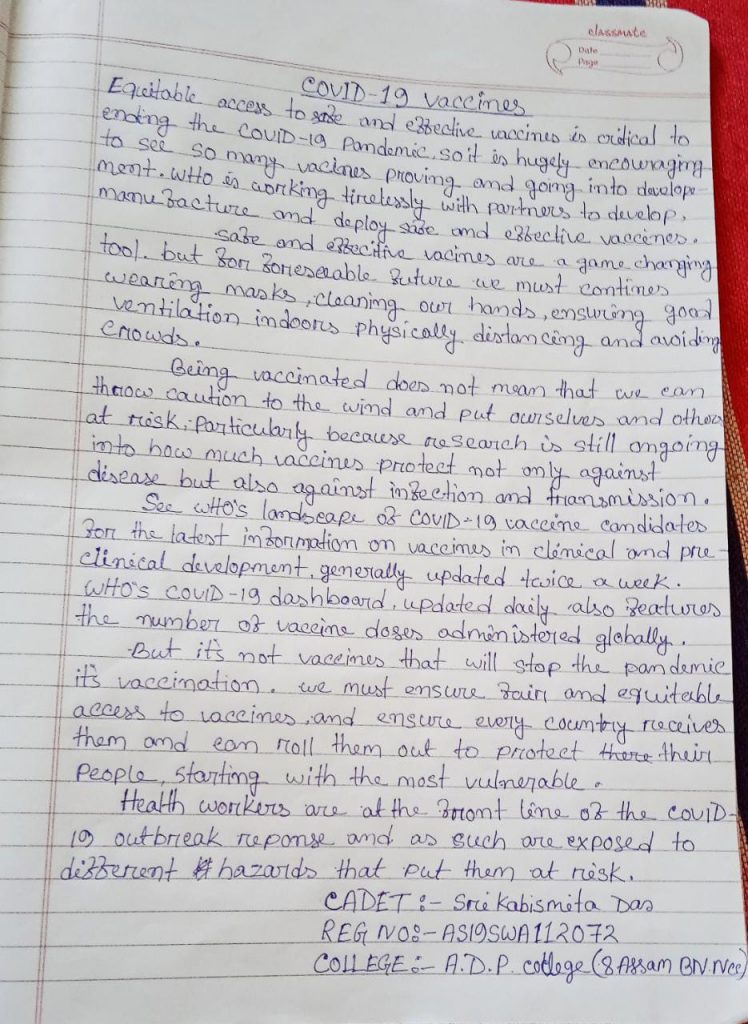 classmate
Date
Page
COVID-19 vaccines
Equitable access to safe and effective vaccines is critical to
ending the COVID-19 Pandemic. so it is hugely encouraging
to see so many vaccines proving and going into develope-
ment. WHO is working tirelessly with partners to develop,
manufacture and deploy safe and effective vaccines.
safe and effecitive vacines are a game changing
tool. but for foreseeable future we must contines
wearing masks, cleaning our hands, ensuring good
ventilation indoors physically distancing and avoiding
crowds.
Being vaccinated does not mean that we can
throw caution to the wind and put ourselves and others
at risk, particularly because research is still ongoing
into how much vaccines protect not only against
disease but also against infection and transmission.
See WHO's landscape of COVID-19 vaccine candidates
for the latest information on vaccines in clinical and pre-
clinical development, generally updated twice a week.
WHO's COVID-19 dashboard, updated daily also features
the number of vaccine doses administered globally.
But it's not vaccines that will stop the pandemic
it's vaccination. we must ensure fair and equitable
access to vaccines, and ensure every country receives
them and can roll them out to protect there their
people, starting with the most vulnerable.
Health workers are at the front line of the COVID-
19 outbreak reponse and as such are exposed to
different hazards that put them at risk.
CADET :- Sri Kabismita Das
REG NO:- AS19SWA112072
COLLEGE :- A.D.P. college (8 Assam BN.NCC)